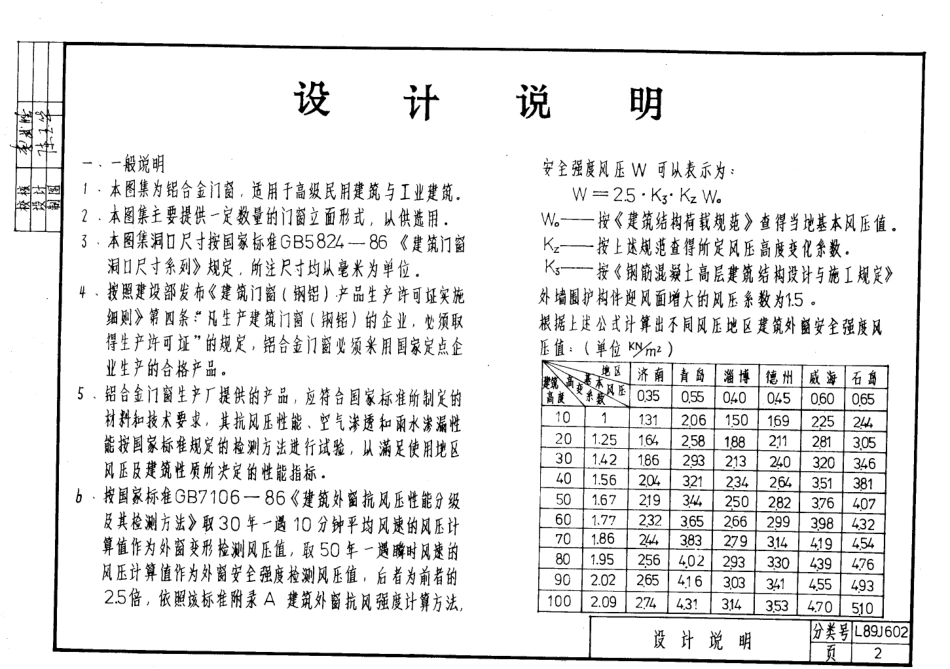 设计说明
一、一般说明
1、本图集为铝合金门窗，适用于高级民用建筑与工业建筑。
2、本图集主要提供一定数量的门窗立面形式，从供选用。
3、本图集洞口尺寸按国家标准GB5824—86《建筑门窗
洞口尺寸系列》规定，所注尺寸均从毫米为单位。
4、按照建设部发布《建筑门窗(钢铝)产品生产许可证实施
细则》第四条："凡生产建筑门窗(钢铝)的企业，必须取
得生产许可证"的规定，铝合金门窗必须采用国家定点企
业生产的合格产品。
5、铝合金门窗生产厂提供的产品，应符合国家标准所制定的
材料和技术要求，其抗风压性能、空气渗透和雨水渗漏性
能按国家标准规定的检测方法进行试验，从满足使用地区
风压及建筑性质所决定的性能指标。
6、按国家标准GB7106—86《建筑外窗抗风压性能分级
及其检测方法》取30年一遇10分钟平均风速的风压计
算值作为外窗变形检测风压值，取50年一遇瞬时风速的
风压计算值作为外窗安全强度检测风压值，后者为前者的
2.5倍，依照该标准附录A 建筑外窗抗风强度计算方法，
安全强度风压W可从表示为：
W＝2.5·K₃·Kz W₀
W₀——按《建筑结构荷载规范》查得当地基本风压值。
Kz——按上述规范查得所定风压高度变化系数。
K₃——按《钢筋混凝土高层建筑结构设计与施工规定》
外墙围护构件迎风面增大的风压系数为1.5。
根据上述公式计算出不同风压地区建筑外窗安全强度风
压值：(单位 KN/m²)
建筑高度 高变系数 基本风压 地区 济南 青岛 淄博 德州 威海 石岛
0.35 0.55 0.40 0.45 0.60 0.65
10 1 1.31 2.06 1.50 1.69 2.25 2.44
20 1.25 1.64 2.58 1.88 2.11 2.81 3.05
30 1.42 1.86 2.93 2.13 2.40 3.20 3.46
40 1.56 2.04 3.21 2.34 2.64 3.51 3.81
50 1.67 2.19 3.44 2.50 2.82 3.76 4.07
60 1.77 2.32 3.65 2.66 2.99 3.98 4.32
70 1.86 2.44 3.83 2.79 3.14 4.19 4.54
80 1.95 2.56 4.02 2.93 3.30 4.39 4.76
90 2.02 2.65 4.16 3.03 3.41 4.55 4.93
100 2.09 2.74 4.31 3.14 3.53 4.70 5.10
校核
设计
制图
设计说明
分类号 L89J602
页 2